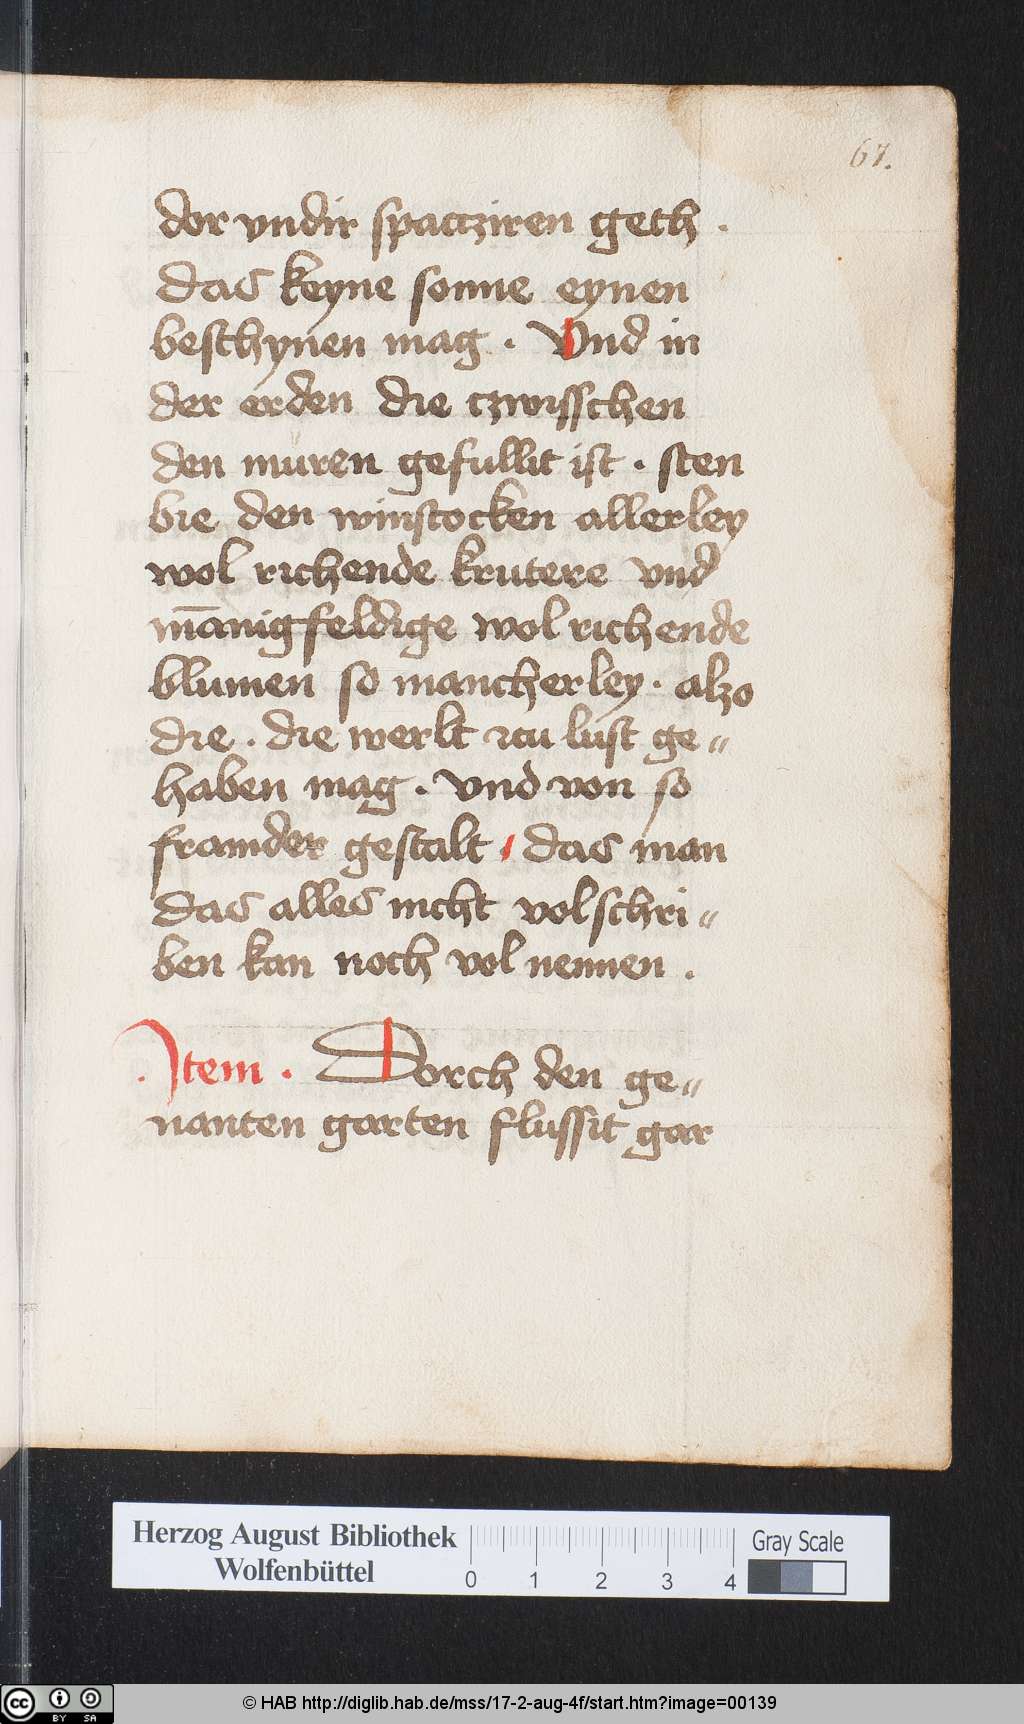 67.
dor vndir spacziren geth .
das keyne sonne eynen
beschynen mag . Vnd in
der erden die czwisschen
den muren gefullit ist . sten
bie den winstocken allerley
wol richende krutere vnd
ma̅nigfeldige wol richende
blumen so mancherley . alzo
die . die werlt zcu lust ge〃
haben mag . vnd von so
framder gestalt . das man
das alles nicht volschri〃
ben kan noch vol nennen .
. Item . Dorch den ge〃
nanten garten flussit gar
Herzog August Bibliothek
Wolfenbüttel
0 1 2 3 4
Gray Scale
cc BY SA
© HAB http://diglib.hab.de/mss/17-2-aug-4f/start.htm?image=00139